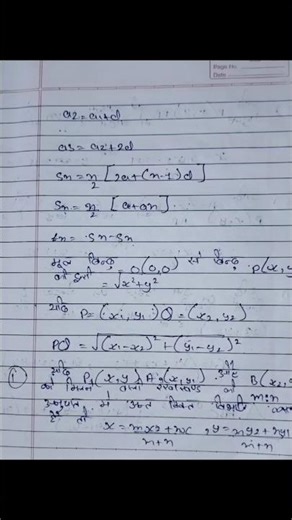 Page No.
Date
a2 = a1+d
a3 = a2+2d
Sn = n/2 [2a+(n-1)d]
Sn = n/2 [a+an]
मूल बिन्दु O(0,0) से बिन्दु P(x,y)
की दूरी = √x²+y²
यदि P = (x1, y1) Q = (x2, y2)
PQ = √(x1-x2)² + (y1-y2)²
① यदि P(x,y) A(x1,y1) और B(x2,
को मिलाने वाले रेखाखण्ड को m:n
अनुपात में अन्तः विभाजित
है तो
x = mx2+nx , y = my2+ny1
m+n m+n